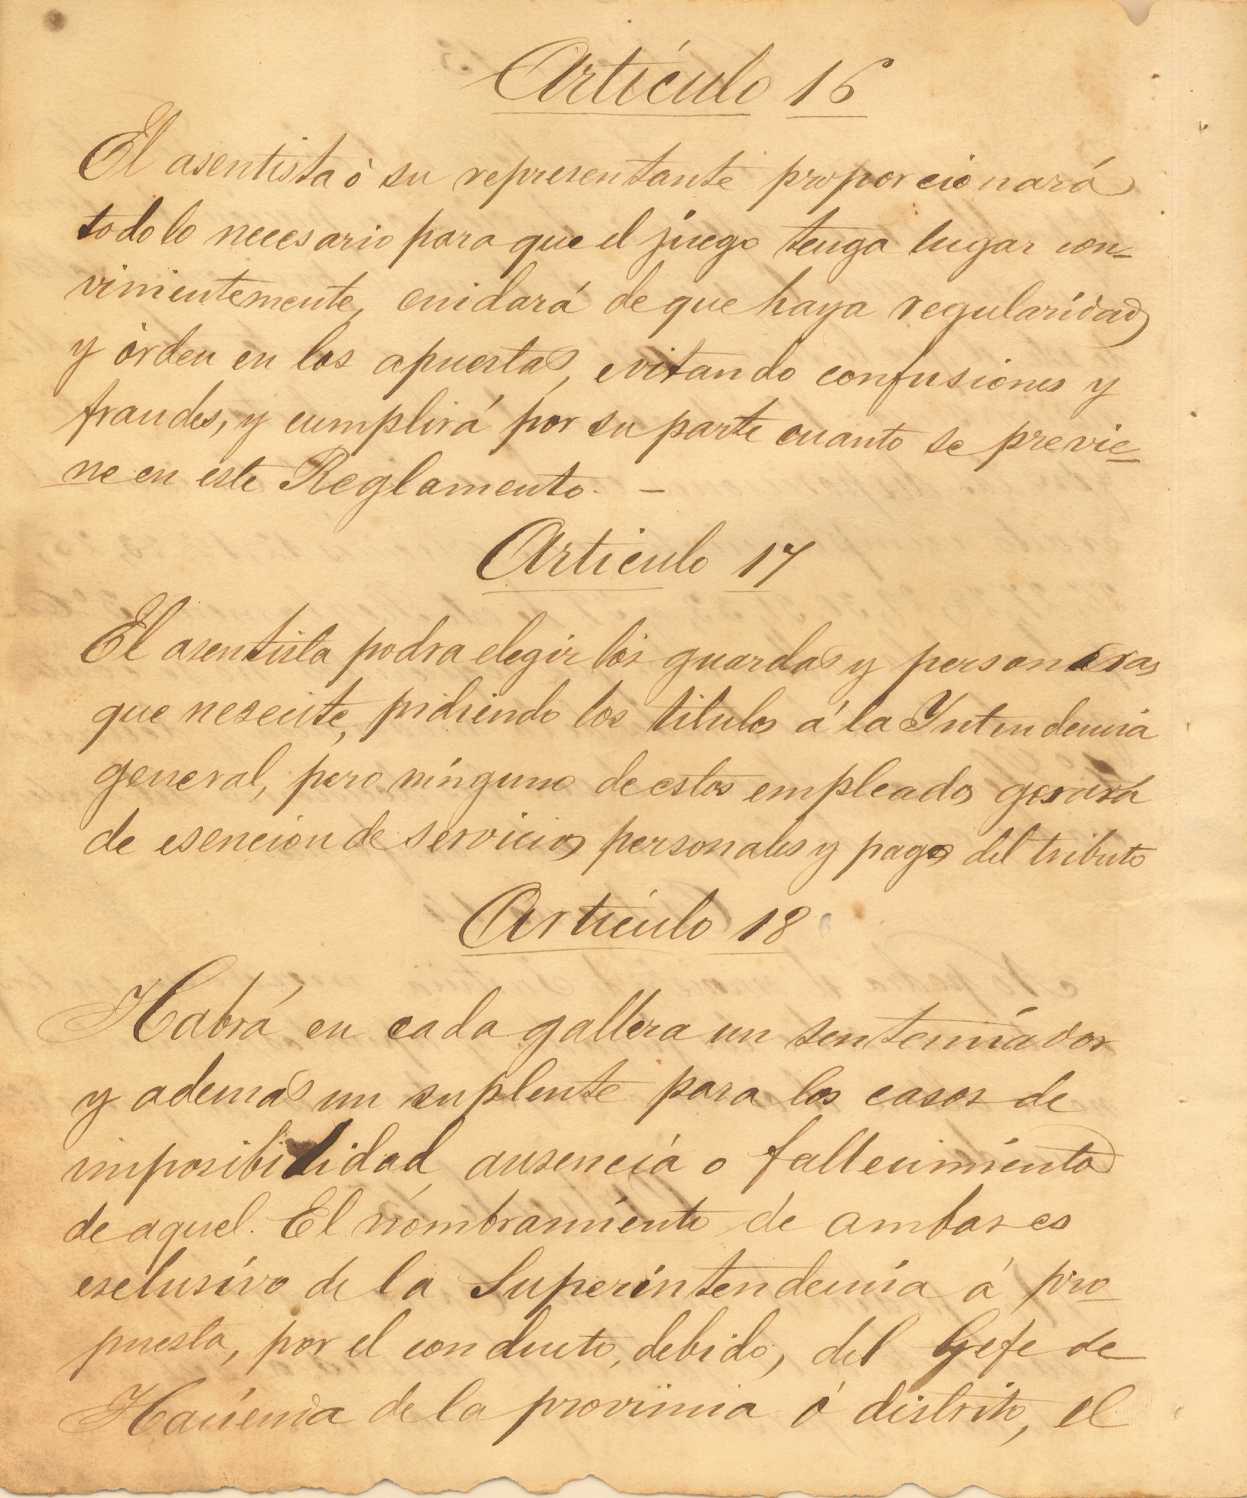 Artículo 16
El asentista ò su representante proporcionará
todo lo necesario para que el juego tenga lugar con-
vinientemente, cuidará de que haya regularidad
y òrden en las apuestas, evitando confusiones y
fraudes, y cumplirá por su parte cuanto se previe-
ne en este Reglamento. —
Artículo 17
El asentista podra elegir los guardas y personeras
que neseite, pidiendo los titulos á la Yntendencia
general, pero ninguno de estos empleados gosará
de esencion de servicios personales y pagos del tributo
Artículo 18
Habrá en cada gallera un sentenciador
y ademas un suplente para los casos de
imposibilidad, ausencia o fallecimiento
de aquel. El nombramiento de ambos es
esclusivo de la Superintendencia á pro-
puesta, por el conducto, debido, del Gefe de
Hacienda de la provincia ó distrito, el